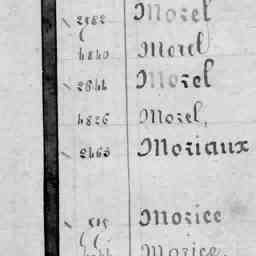 2982 Morel
4840 Morel
2844 Morel
4826 Morel,
2463 Moriaux
515 Morice
Morice,